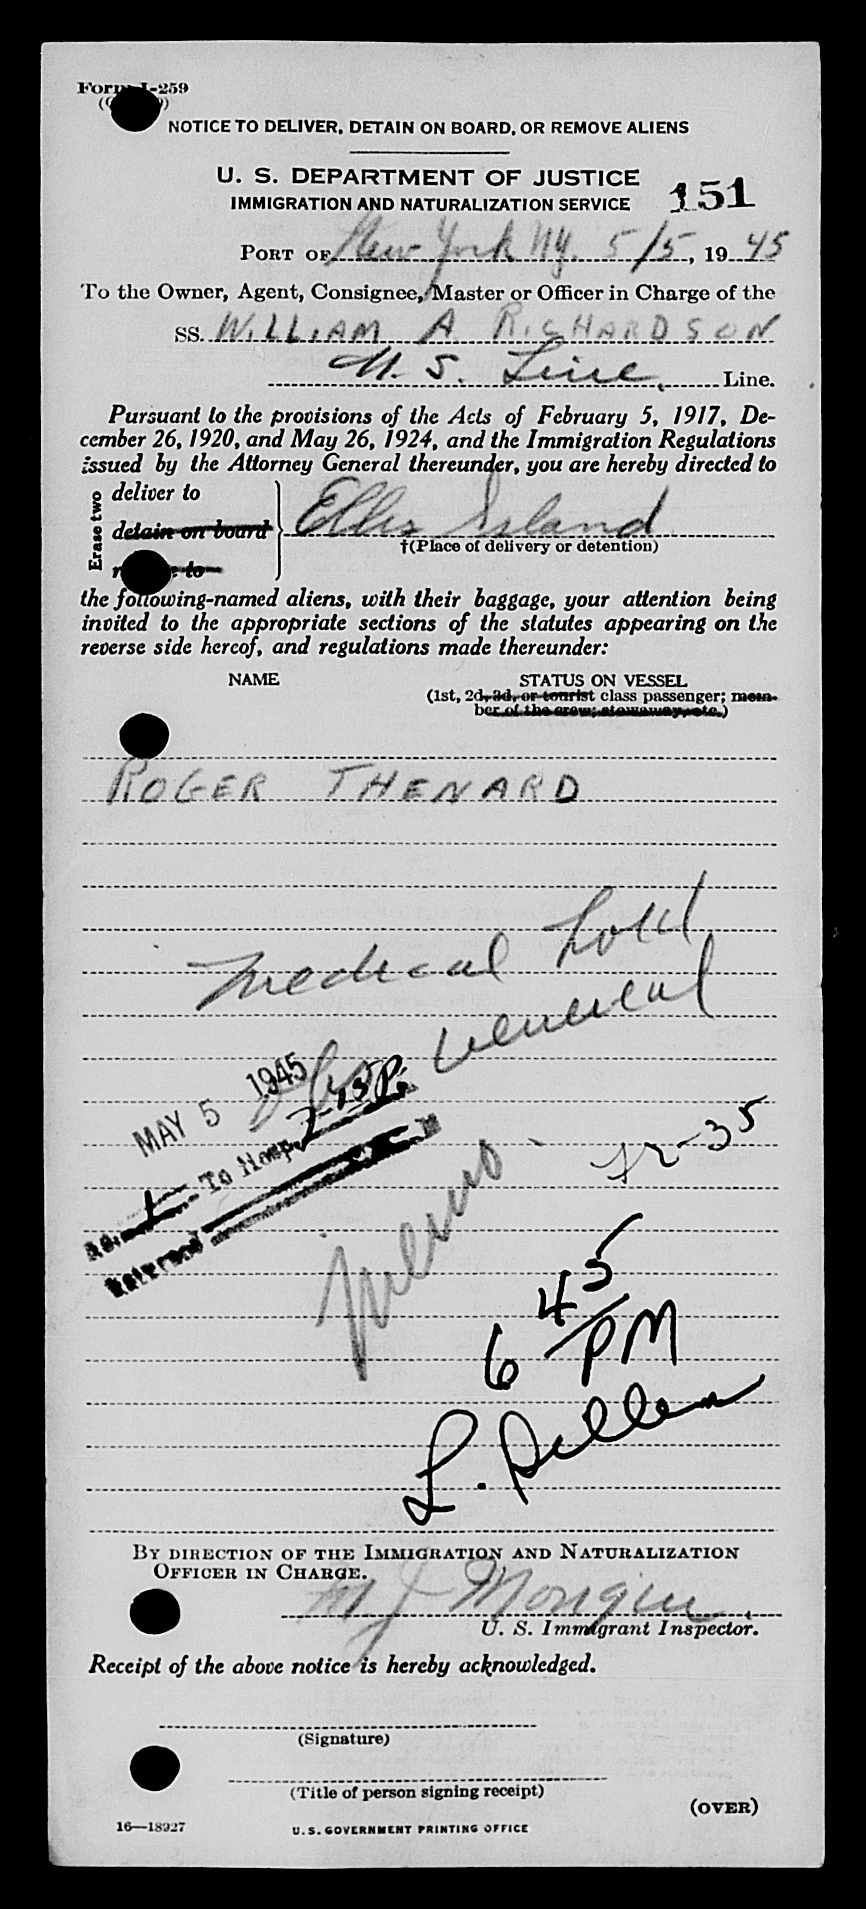 Form I-259
NOTICE TO DELIVER, DETAIN ON BOARD, OR REMOVE ALIENS
U. S. DEPARTMENT OF JUSTICE
IMMIGRATION AND NATURALIZATION SERVICE
151
PORT OF New York NY. 5/5, 1945
To the Owner, Agent, Consignee, Master or Officer in Charge of the
SS. WILLIAM A RICHARDSON
U. S. Line Line.
Pursuant to the provisions of the Acts of February 5, 1917, De-
cember 26, 1920, and May 26, 1924, and the Immigration Regulations
issued by the Attorney General thereunder, you are hereby directed to
Erase two
deliver to
detain on board
to
Ellis Island
†(Place of delivery or detention)
the following-named aliens, with their baggage, your attention being
invited to the appropriate sections of the statutes appearing on the
reverse side hereof, and regulations made thereunder:
NAME
STATUS ON VESSEL
(1st, 2d, 3d, or tourist class passenger; mem-
ber of the crew; stowaway, etc.)
ROGER THENARD
Medical hold
venereal
MAY 5 1945
To Hosp.
12-35
6 45/PM
BY DIRECTION OF THE IMMIGRATION AND NATURALIZATION
OFFICER IN CHARGE.
M J
U. S. Immigrant Inspector.
Receipt of the above notice is hereby acknowledged.
(Signature)
(Title of person signing receipt)
(OVER)
16—18927
U. S. GOVERNMENT PRINTING OFFICE